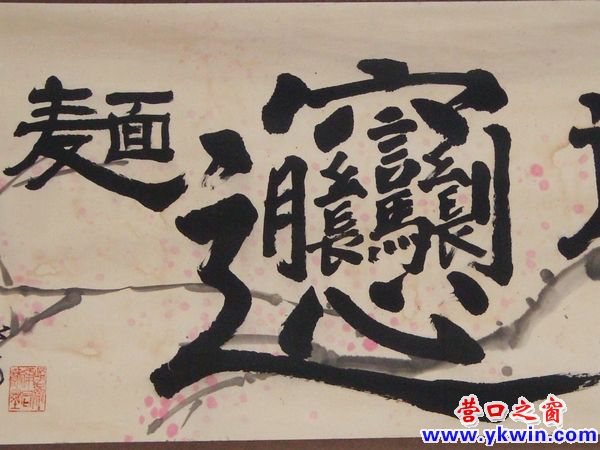 𰻞麺
营口之窗
www.ykwin.com